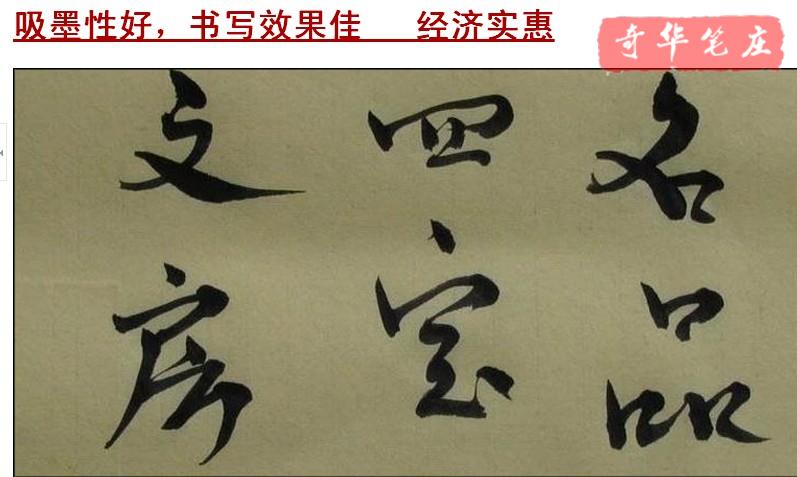 吸墨性好，书写效果佳 经济实惠
奇华笔庄
文房
四宝
名品